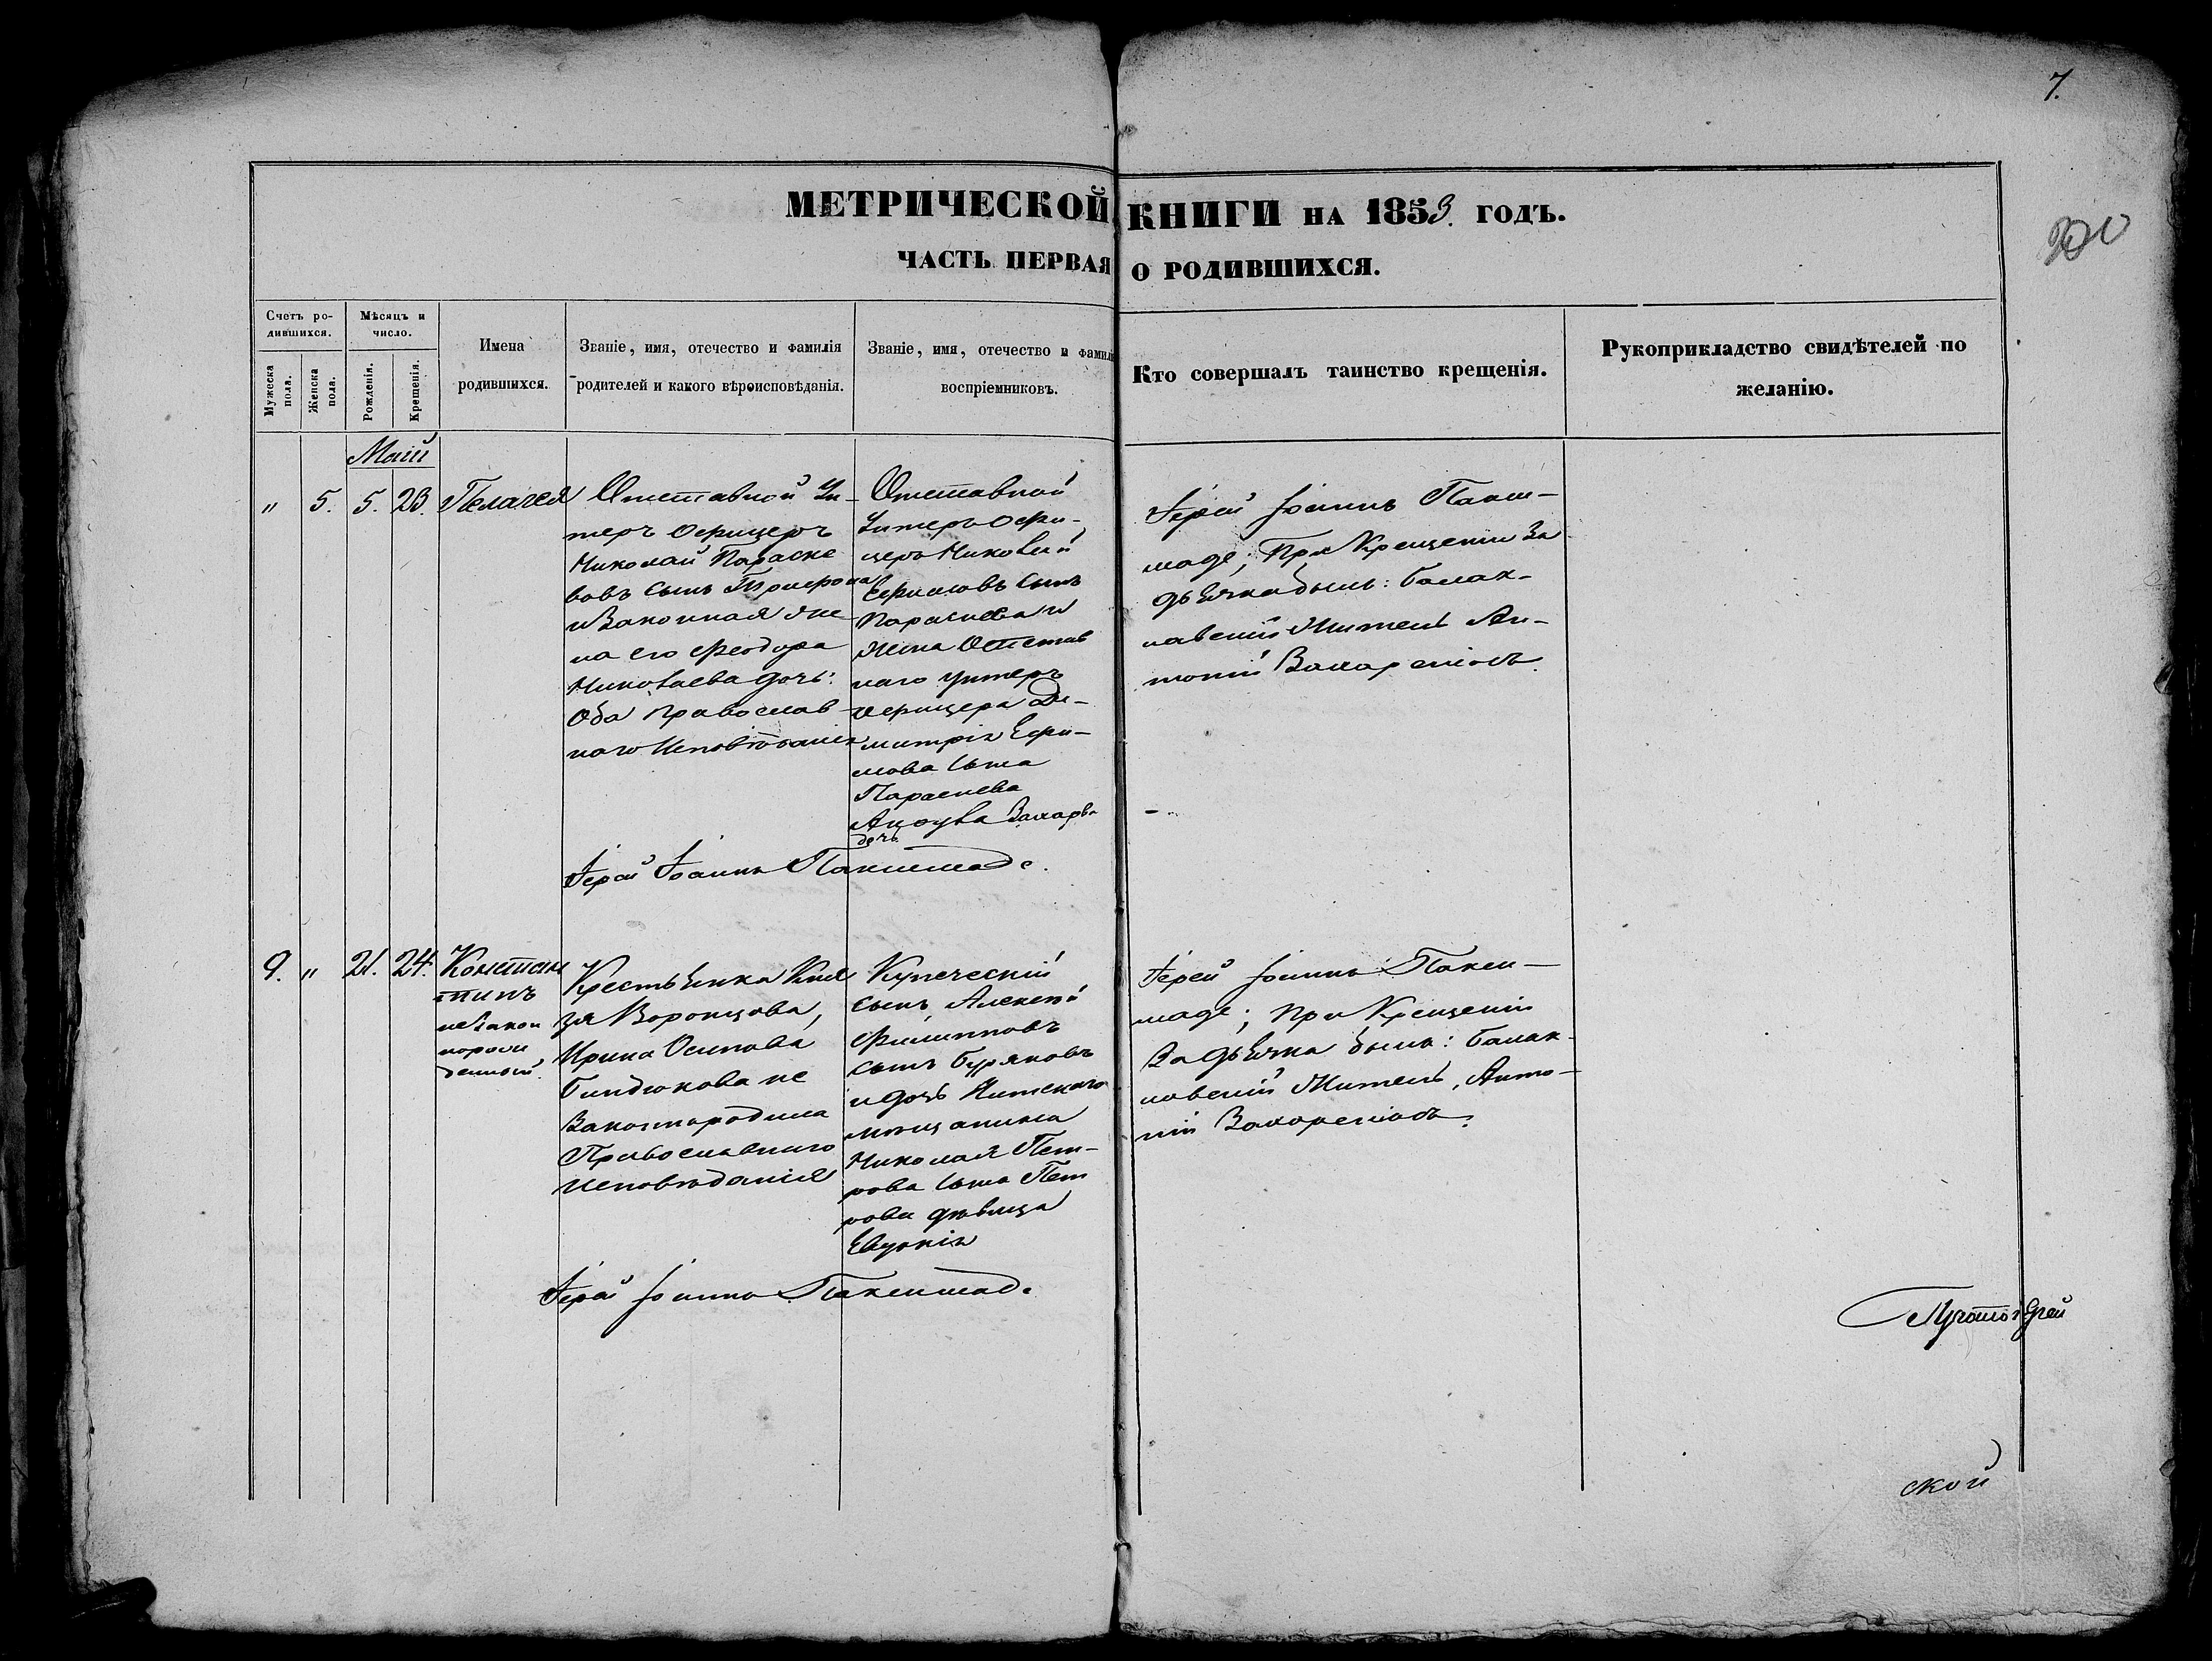 7.
МЕТРИЧЕСКОЙ КНИГИ НА 1853. ГОДЪ.
ЧАСТЬ ПЕРВАЯ О РОДИВШИХСЯ.
Счетъ ро-
дившихся.
Мужеска
пола.
Женска
пола.
Мѣсяцъ и
число.
Рожденія.
Крещенія.
Имена
родившихся.
Званіе, имя, отечество и фамилія
родителей и какого вѣроисповѣданія.
Званіе, имя, отечество и фамилі
воспріемниковъ.
Кто совершалъ таинство крещенія.
Рукоприкладство свидѣтелей по
желанію.
Маій
" 5. 5. 23.
Пелагея
Отставной Ун-
теръ Офицеръ
Николай Параске
вовъ сынъ Трифона
и Законная же
на его Феодора
Николаева дочь:
Оба православ-
наго Исповѣданія
Отставной
Унтеръ Офи-
церъ Николай
Ефимовъ сынъ
Параскева и
жена Отстав
наго унтеръ
офицера Ди-
митрія Ефи-
мова сына
Параскева
Захарова
дочь.
Іерей Іоаннъ Пакси-
маде; При Крещеніи За
дьячка былъ: Балак-
лавскій Житель Ан-
тоній
Іерей Іоаннъ Паксимаде.
9. " 21. 24.
Констан
тинъ
незакон
норож
денный.
Крестьянка Кня
зя Воронцова,
Ирина Осипова
Биндюкова не
Законнородила
Православнаго
Исповѣданія
Купеческій
сынъ Алексѣй
Филипповъ
сынъ Буряковъ
и дочь
мѣщанина
Николая Пет-
рова сына Пет
рова дѣвица
Евдокія
Іерей Іоаннъ Пакси-
маде; При Крещеніи
За дьячка былъ: Балак-
лавскій Житель, Анто-
ній
Іерей Іоаннъ Паксимаде
Протоіерей
ской